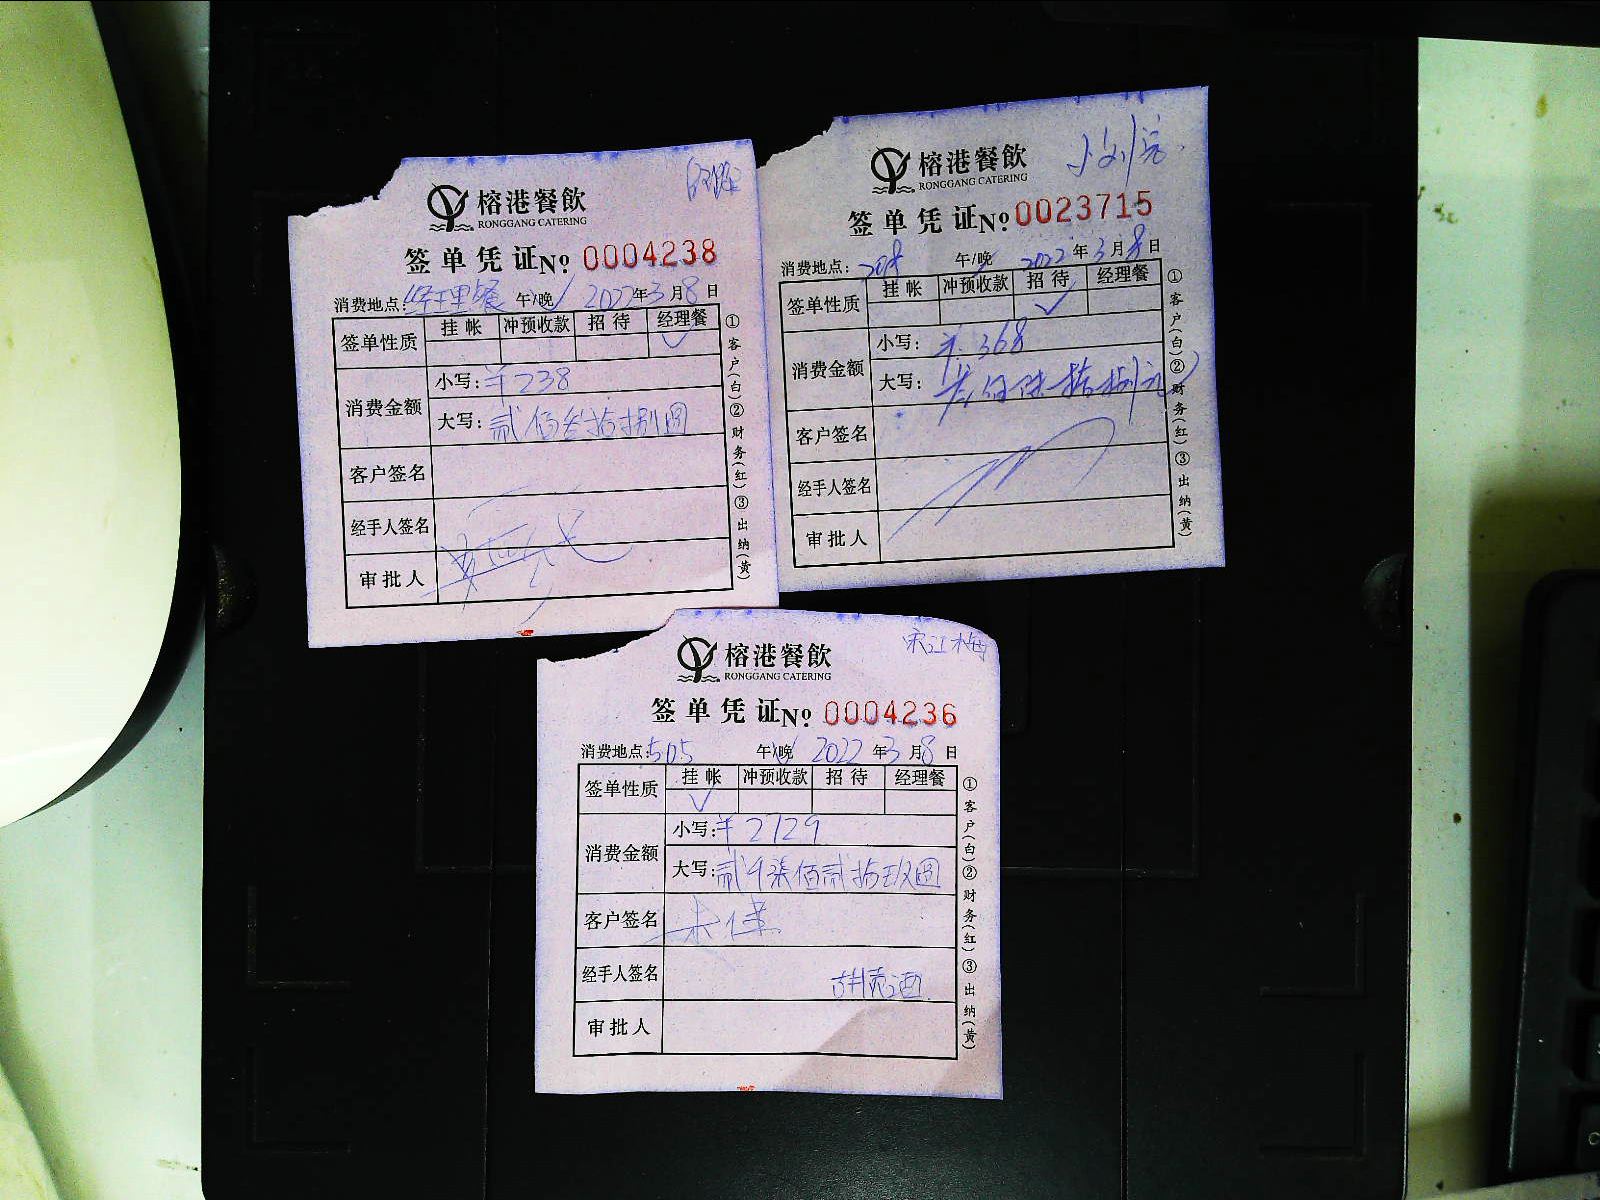 榕港餐飲
RONGGANG CATERING
签单凭证№ 0004238
消费地点: 经理餐 午/晚 2022年3月8日
签单性质 挂帐 冲预收款 招待 经理餐
✓
消费金额
小写: ¥238
大写: 贰佰叁拾捌圆
客户签名
经手人签名
审批人
①客户(白)②财务(红)③出纳(黄)
小刘
榕港餐飲
RONGGANG CATERING
签单凭证№ 0023715
消费地点: 208 午/晚 2022年3月8日
签单性质 挂帐 冲预收款 招待 经理餐
✓
消费金额
小写: ¥368
大写: 叁佰陆拾捌元
客户签名
经手人签名
审批人
①客户(白)②财务(红)③出纳(黄)
宋江梅
榕港餐飲
RONGGANG CATERING
签单凭证№ 0004236
消费地点: 505 午/晚 2022年3月8日
签单性质 挂帐 冲预收款 招待 经理餐
✓
消费金额
小写: ¥2729
大写: 贰仟柒佰贰拾玖圆
客户签名
经手人签名
审批人
①客户(白)②财务(红)③出纳(黄)